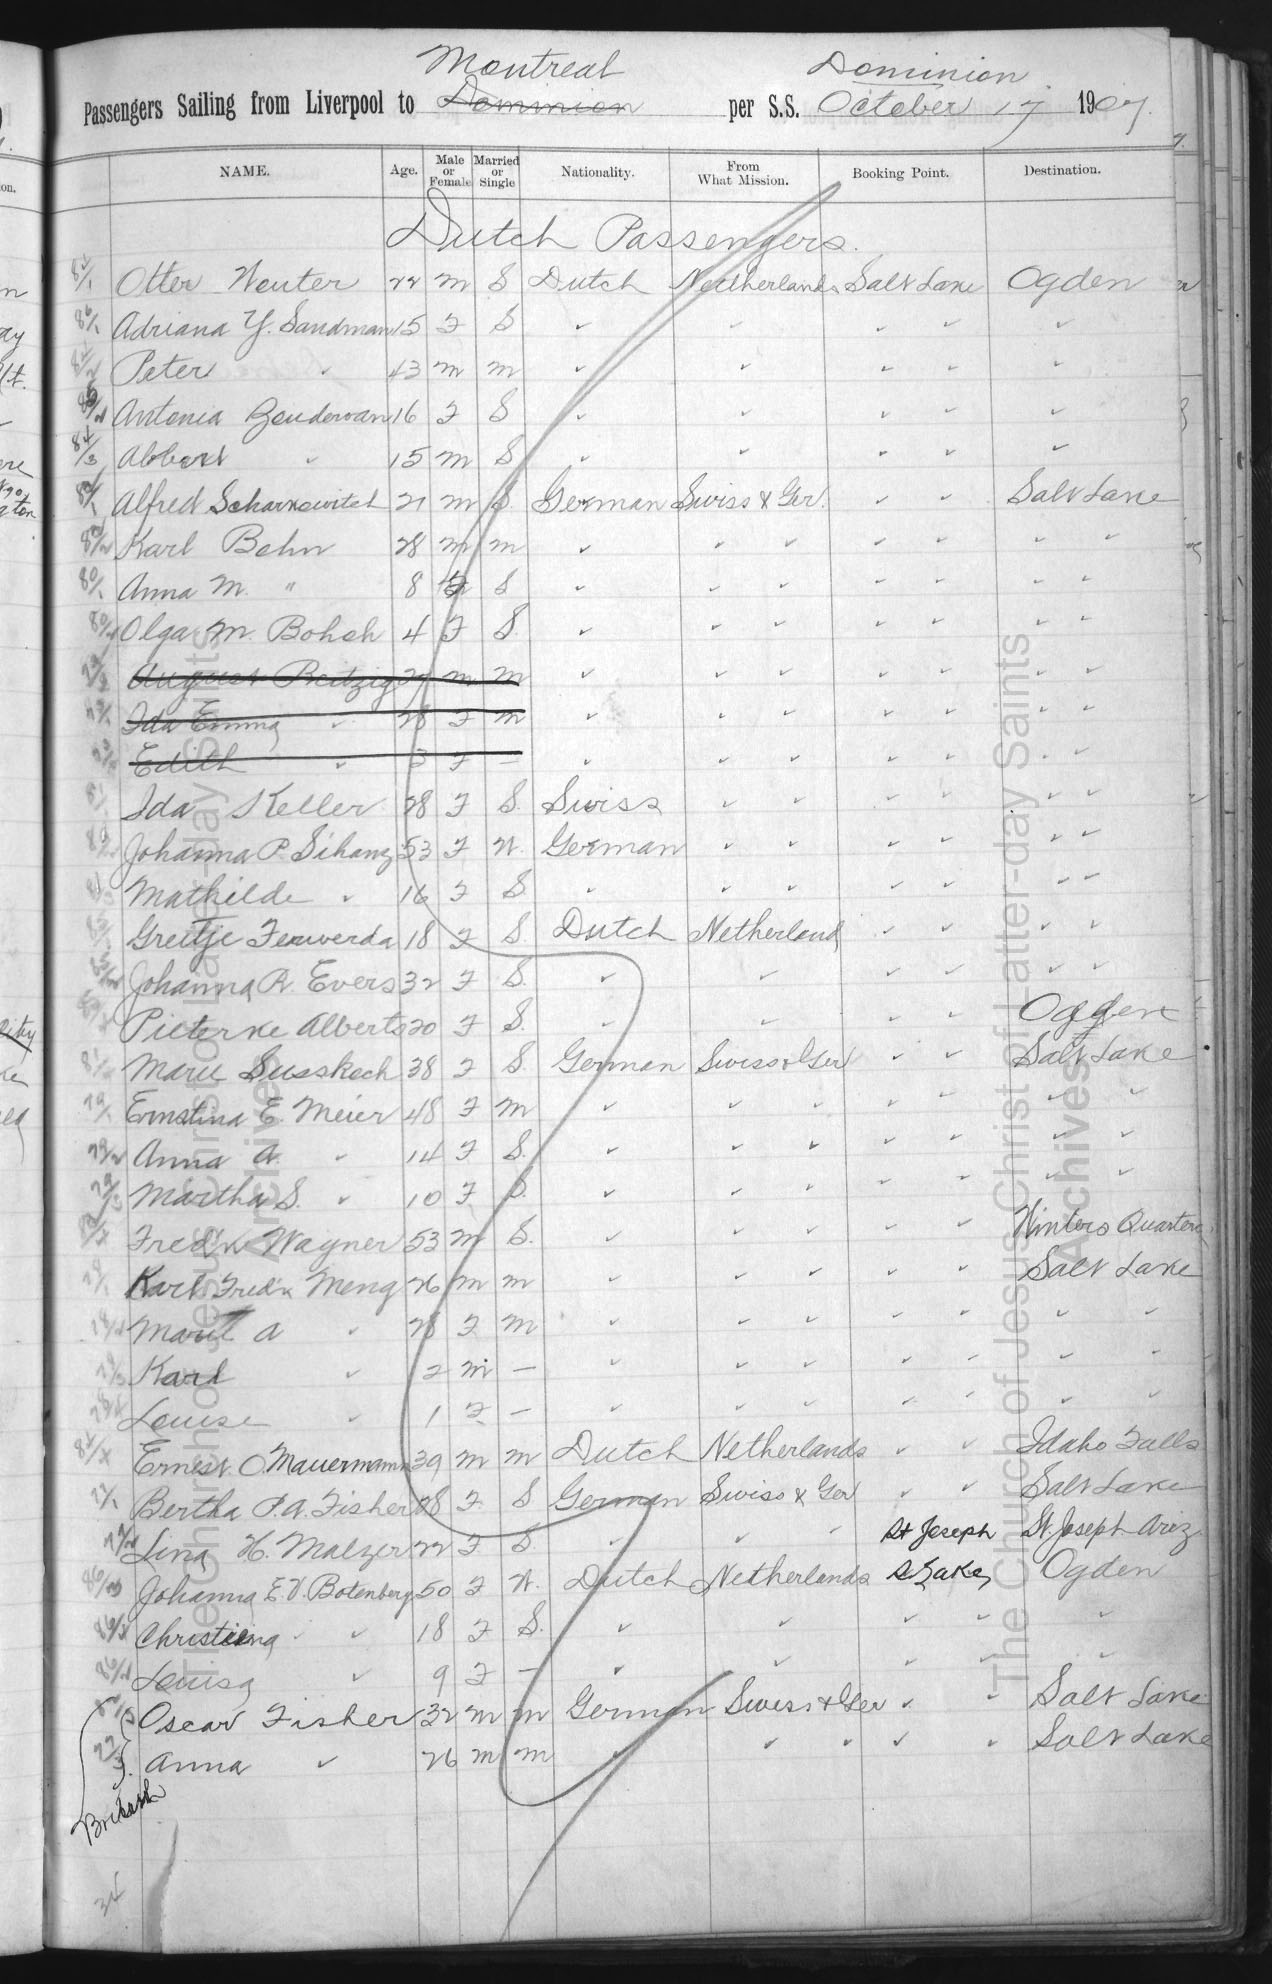 Montreal Dominion
Passengers Sailing from Liverpool to Dominion per S.S. October 17 1907.
NAME. Age. Male or Female Married or Single Nationality. From What Mission. Booking Point. Destination.
Dutch Passengers.
Otter Wouter 22 M S Dutch Netherlands Salt Lake Ogden
Adriana Y. Sandman 15 F S ✓ ✓ ✓ ✓ ✓
Peter ✓ 43 M M ✓ ✓ ✓ ✓ ✓
Antonia 16 F S ✓ ✓ ✓ ✓ ✓
Abbert ✓ 15 M S ✓ ✓ ✓ ✓ ✓
Alfred Scharkowitch 21 M S. German Swiss & Ger. ✓ ✓ Salt Lake
Karl Bohn 28 M M ✓ ✓ ✓ ✓ ✓ ✓ ✓
Anna M. " 8 F S ✓ ✓ ✓ ✓ ✓ ✓ ✓
Olga M. Bohch 4 F S. ✓ ✓ ✓ ✓ ✓ ✓ ✓
August Reitzig 27 M M ✓ ✓ ✓ ✓ ✓ ✓ ✓
Ida Emma ✓ 28 F M ✓ ✓ ✓ ✓ ✓ ✓ ✓
Edith ✓ 3 F — ✓ ✓ ✓ ✓ ✓ ✓ ✓
Ida Keller 28 F S. Swiss ✓ ✓ ✓ ✓ ✓ ✓
Johanna P. Sihang 53 F W. German ✓ ✓ ✓ ✓ ✓ ✓
Mathilde ✓ 16 F S ✓ ✓ ✓ ✓ ✓ ✓ ✓
Greitje Ferwerda 18 F S. Dutch Netherland ✓ ✓ ✓ ✓
Johanna R. Evers 32 F S. ✓ ✓ ✓ ✓ ✓ ✓
Pieterke Alberts 20 F S. ✓ ✓ ✓ ✓ Ogden
Marie Susskoch 38 F S. German Swiss & Ger ✓ ✓ Salt Lake
Ernstina E. Meier 48 F M ✓ ✓ ✓ ✓ ✓ ✓ ✓
Anna A. ✓ 14 F S. ✓ ✓ ✓ ✓ ✓ ✓ ✓
Martha S. ✓ 10 F S. ✓ ✓ ✓ ✓ ✓ ✓ ✓
Fred'k Wagner 53 M S. ✓ ✓ ✓ ✓ ✓ Winters Quarters
Karl Fred'k Meng 26 M M ✓ ✓ ✓ ✓ ✓ Salt Lake
Marie A ✓ 28 F M ✓ ✓ ✓ ✓ ✓ ✓ ✓
Karl ✓ 2 M — ✓ ✓ ✓ ✓ ✓ ✓ ✓
Louise ✓ 1 F — ✓ ✓ ✓ ✓ ✓ ✓ ✓
Ernest O. Mauermann 39 M M Dutch Netherlands ✓ ✓ Idaho Falls
Bertha P.A. Fisher 28 F. S German Swiss & Ger ✓ ✓ Salt Lake
Lina H. Malzer 22 F S. ✓ ✓ ✓ St Joseph St. Joseph Ariz.
Johanna E.V. Botenberg 50 F W. Dutch Netherlands S Lake Ogden
Christina ✓ ✓ 18 F S. ✓ ✓ ✓ ✓ ✓
Louisa ✓ 9 F — ✓ ✓ ✓ ✓ ✓
Oscar Fisher 32 M M German Swiss & Ger ✓ ✓ Salt Lake
Anna ✓ 26 M M ✓ ✓ ✓ ✓ ✓ Salt Lake
British
34
The Church of Jesus Christ of Latter-day Saints
Archives
The Church of Jesus Christ of Latter-day Saints
Archives